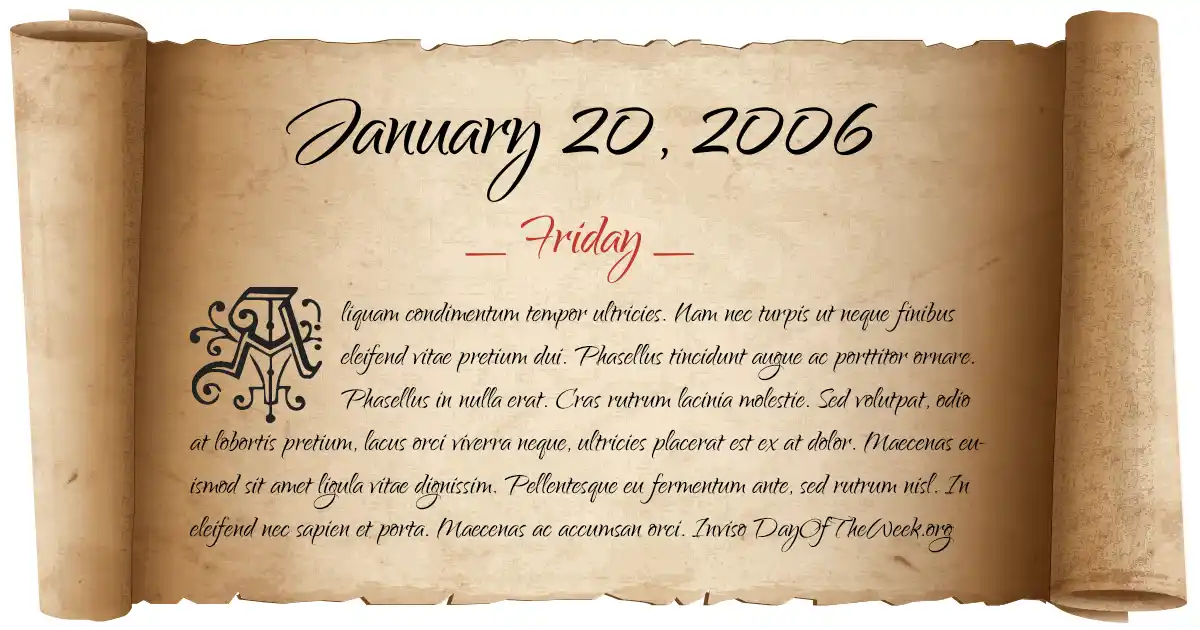 January 20, 2006
_ Friday _
Aliquam condimentum tempor ultricies. Nam nec turpis ut neque finibus
eleifend vitae pretium dui. Phasellus tincidunt augue ac porttitor ornare.
Phasellus in nulla erat. Cras rutrum lacinia molestie. Sed volutpat, odio
at lobortis pretium, lacus orci viverra neque, ultricies placerat est ex at dolor. Maecenas eu-
ismod sit amet ligula vitae dignissim. Pellentesque eu fermentum ante, sed rutrum nisl. In
eleifend nec sapien et porta. Maecenas ac accumsan orci. Inviso DayOfTheWeek.org